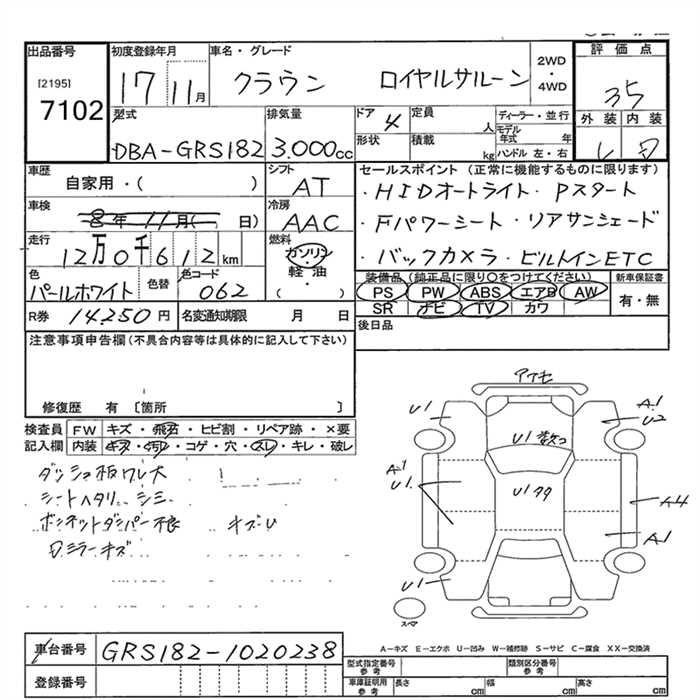 出品番号 初度登録年月 車名・グレード 2WD・4WD 評価点
[2195]
7102 17 11月 クラウン ロイヤルサルーン 35
型式 排気量 ドア 定員 ディーラー・並行 外装 内装
DBA-GRS182 3.000cc 4 人 モデル年式 年
形状 積載 kg ハンドル 左・右
車歴 シフト セールスポイント (正常に機能するものに限ります)
自家用・( ) AT ・HIDオートライト・Pスタート
車検 冷房
8年11月( 日) AAC ・Fパワーシート・リアサンシェード
走行 燃料
12万0千612km ガソリン ・バックカメラ・ビルトインETC
軽・油
( )
色 色替 色コード 装備品(純正品に限り○をつけてください) 新車保証書
パールホワイト 062 PS PW ABS エアB AW 有・無
SR ナビ TV カワ
R券 14250円 名変通知期限 月 日 後日品
注意事項申告欄(不具合内容等は具体的に記入して下さい)
修復歴 有〔箇所 〕
検査員記入欄 FW キズ・飛石・ヒビ割・リペア跡・×要
内装 キズ・汚れ・コゲ・穴・スレ・キレ・破レ
ダッシュ板ワレ大
シートヘタリ シミ
ボンネットダンパー不良 キズU
Dミラーキズ
アケモ
U1
A1
U2
U1数コ
A1
U1
U1タタ
A4
A1
U1
スマ
A-キズ E-エクボ U-凹み W-補修跡 S-サビ C-腐食 XX-交換済
車台番号 GRS182-1020238
型式指定番号 参考 類別区分番号 参考
登録番号 車庫証明用 参考 長さ cm 幅 cm 高さ cm